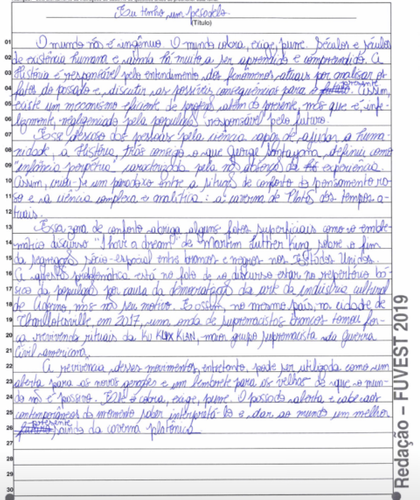 Eu tenho um pesadelo
(Título)
01 O mundo não é ingênuo. O mundo cobra, exige, pune. Séculos e séculos
02 de existência humana e ainda há muito a ser aprendido e compreendido. A
03 História é responsável pelo entendimento dos fenômenos atuais por analisar os
04 fatos do passado e discutir as possíveis consequências para o presente. Assim,
05 existe um mecanismo eficiente de projeção além do presente, mas que é
06 negligenciado pela população responsável pelo futuro.
07 Esse descaso das pessoas pela ciência capaz de ajudar a huma-
08 nidade, a História, traz consigo o que George Santayana definiu como
09 "infância perpétua" caracterizada pela não absorção da experiência
10 Assim, cria-se um paradoxo entre a situação de conforto do pensamento ra-
11 so e a ciência complexa e analítica: a caverna de Platão dos tempos a-
12 tuais.
13 Essa zona de conforto abriga alguns fatos superficiais como o emble-
14 mático discurso "I have a dream" de Martin Luther King sobre o fim
15 da segregação sócio-espacial entre brancos e negros nos Estados Unidos.
16 A questão problemática está no fato de o discurso estar no repertório bá-
17 sico da população por causa da democratização da arte da indústria cultural
18 de Adorno, mas não seu motivo. E assim, no mesmo país, na cidade de
19 Charllotesville, em 2017, uma onda de supremacistas brancos tomou for-
20 ça revivendo rituais da KU KLUX KLAN, maior grupo supremacista da Guerra
21 Civil americana.
22 A revivência desses movimentos, entretanto, pode ser utilizada como um
23 alerta para as novas gerações e um lembrete para os velhos de que o mun-
24 do não é passivo. Ele cobra, exige, pune. O passado alerta e cabe aos
25 contemporâneos do momento saber interpretá-lo e dar ao mundo um melhor
26 presente saindo da caverna platônica.
27
28
29
30
Redação – FUVEST 2019